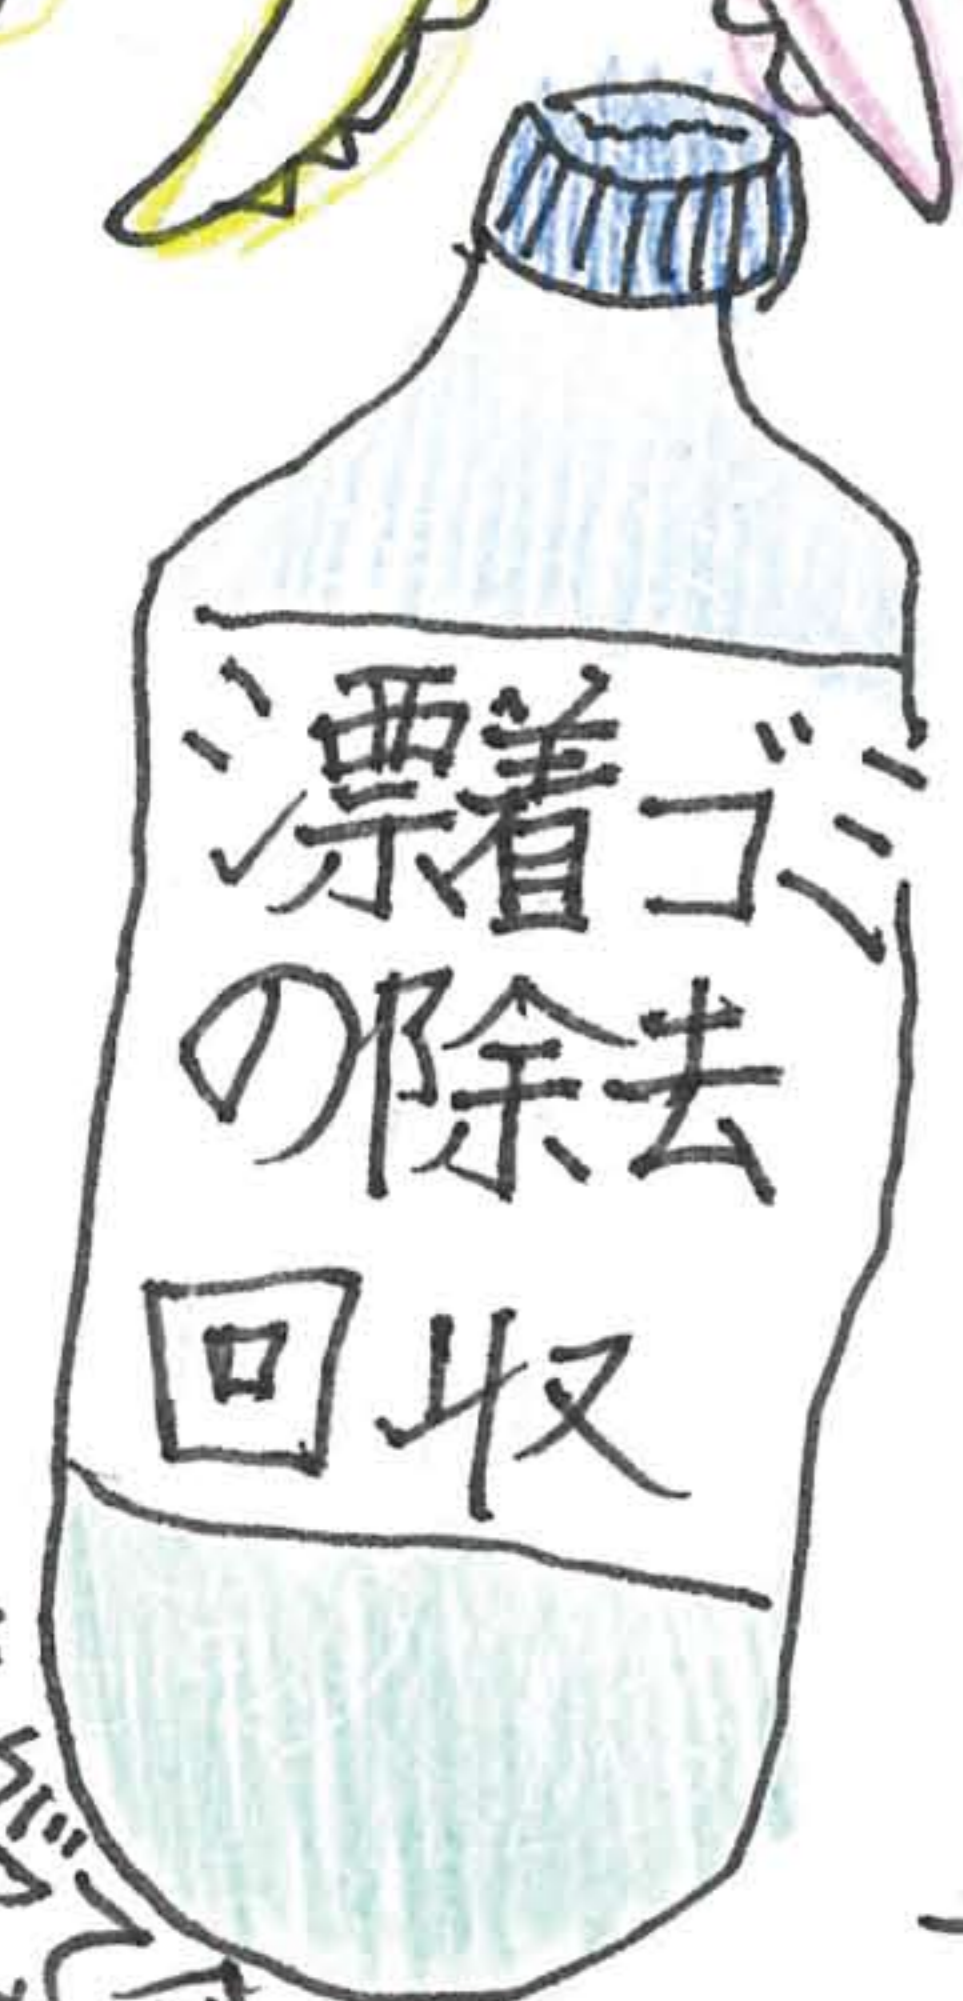 漂着ゴミ
の除去
回収